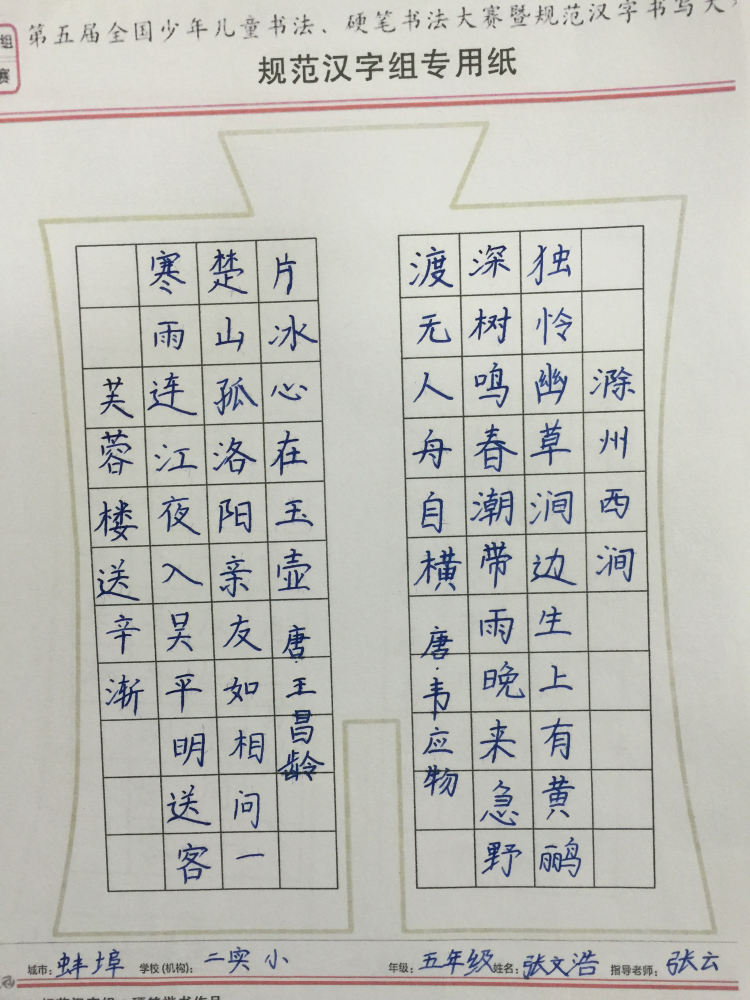 组
赛
第五届全国少年儿童书法、硬笔书法大赛暨规范汉字书写大
规范汉字组专用纸
滁州西涧
独怜幽草涧边生上有黄鹂
深树鸣春潮带雨晚来急野
渡无人舟自横唐·韦应物
芙蓉楼送辛渐
寒雨连江夜入吴平明送客
楚山孤洛阳亲友如相问一
片冰心在玉壶唐·王昌龄
城市：蚌埠 学校(机构)：二实小 年级：五年级 姓名：张文浩 指导老师：张云